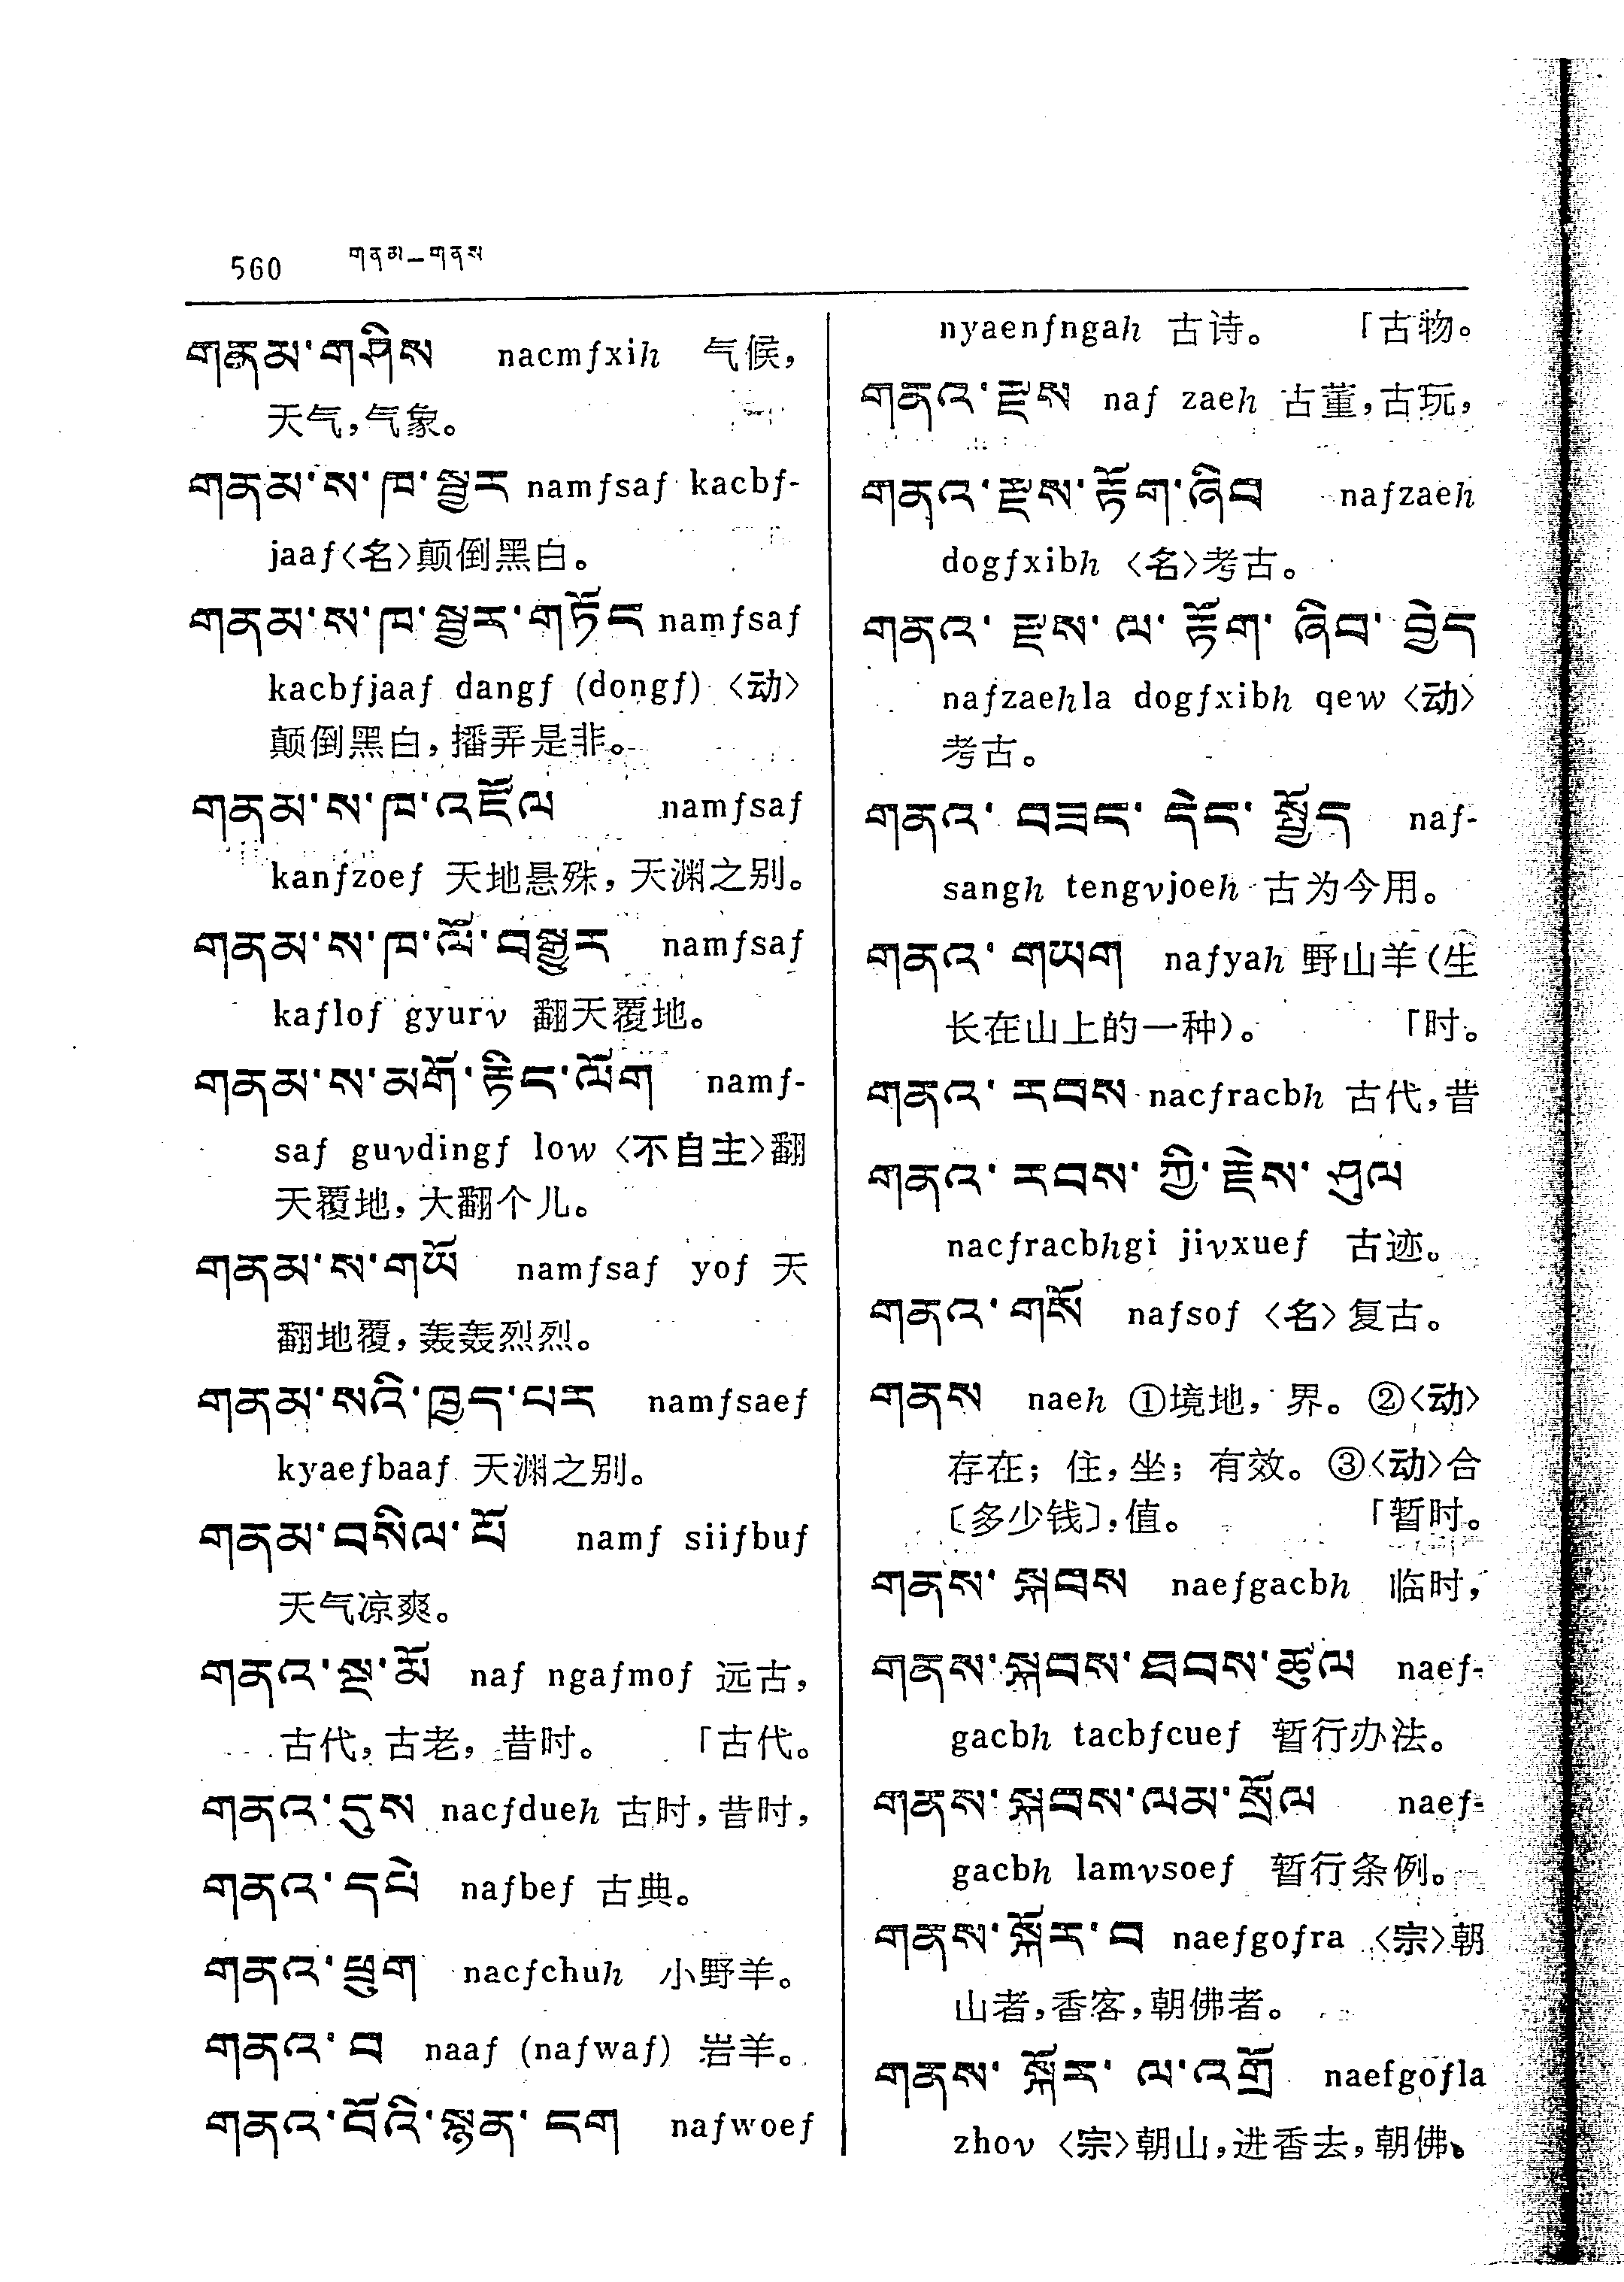 560 གནམ–གནས
གནམ་གཤིས nacmfxih 气候，
天气，气象。
གནམ་ས་ཁ་སྦྱར namfsaf kacbf-
jaaf〈名〉颠倒黑白。
གནམ་ས་ཁ་སྦྱར་གཏོང namfsaf
kacbfjaaf dangf (dongf)〈动〉
颠倒黑白，播弄是非。
གནམ་ས་ཁ་འཛོལ namfsaf
kanfzoef 天地悬殊，天渊之别。
གནམ་ས་ཁ་ལོ་བསྒྱུར namfsaf
kaflof gyurv 翻天覆地。
གནམ་ས་མགོ་རྟིང་ལོག namf-
saf guvdingf low〈不自主〉翻
天覆地，大翻个儿。
གནམ་ས་གཡོ namfsaf yof 天
翻地覆，轰轰烈烈。
གནམ་སའི་ཁྱད་པར namfsaef
kyaefbaaf 天渊之别。
གནམ་བསིལ་པོ namf siifbuf
天气凉爽。
གནའ་སྔ་མོ naf ngafmof 远古，
古代，古老，昔时。 「古代。
གནའ་དུས nacfdueh 古时，昔时，
གནའ་དཔེ nafbef 古典。
གནའ་ཕྲུག nacfchuh 小野羊。
གནའ་བ naaf (nafwaf) 岩羊。
གནའ་བོའི་སྙན་ངག nafwoef
nyaenfngah 古诗。 「古物。
གནའ་རྫས naf zaeh 古董，古玩，
གནའ་རྫས་རྟོག་ཞིབ nafzaeh
dogfxibh〈名〉考古。
གནའ་རྫས་ལ་རྟོག་ཞིབ་བྱེད
nafzaehla dogfxibh qew〈动〉
考古。
གནའ་བཟང་དེང་སྤྱོད naf-
sangh tengvjoeh 古为今用。
གནའ་གཡག nafyah 野山羊（生
长在山上的一种）。 「时。
གནའ་རབས nacfracbh 古代，昔
གནའ་རབས་ཀྱི་རྗེས་ཤུལ
nacfracbhgi jivxuef 古迹。
གནའ་གསོ nafsof〈名〉复古。
གནས naeh ①境地，界。②〈动〉
存在；住，坐；有效。③〈动〉合
〔多少钱〕，值。 「暂时。
གནས་སྐབས naefgacbh 临时，
གནས་སྐབས་ཐབས་ཚུལ naef-
gacbh tacbfcuef 暂行办法。
གནས་སྐབས་ལམ་སྲོལ naef-
gacbh lamvsoef 暂行条例。
གནས་སྐོར་བ naefgofra〈宗〉朝
山者，香客，朝佛者。
གནས་སྐོར་ལ་འགྲོ naefgofla
zhov〈宗〉朝山，进香去，朝佛。